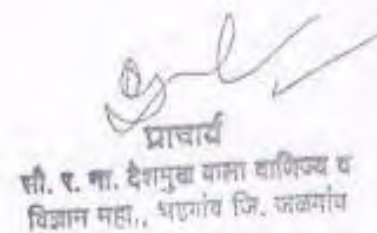 प्राचार्य
सौ. र. ना. देशमुख कला वाणिज्य व
विज्ञान महा., भडगांव जि. जळगांव